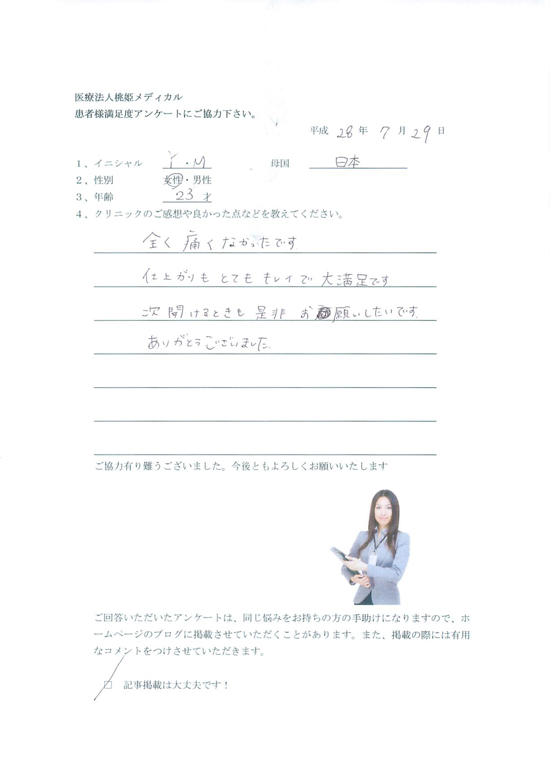 医療法人桃姫メディカル
患者様満足度アンケートにご協力下さい。
平成 28 年 7 月 29 日
1、イニシャル Y・M 母国 日本
2、性別 女性・男性
3、年齢 23 才
4、クリニックのご感想や良かった点などを教えてください。
全く痛くなかったです
仕上がりもとてもキレイで大満足です
次開けるときも是非お願いしたいです。
ありがとうございました。
ご協力有り難うございました。今後ともよろしくお願いいたします
ご回答いただいたアンケートは、同じ悩みをお持ちの方の手助けになりますので、ホ
ームページのブログに掲載させていただくことがあります。また、掲載の際には有用
なコメントをつけさせていただきます。
□ 記事掲載は大丈夫です！